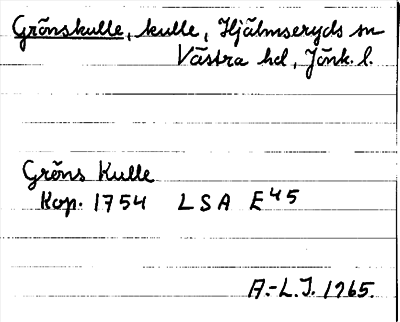 Grönskulle, kulle, Hjälmseryds sn
Västra hd, Jönk. l.
Gröns Kulle
Kop. 1754 LSA E45
A.-L.J. 1965.